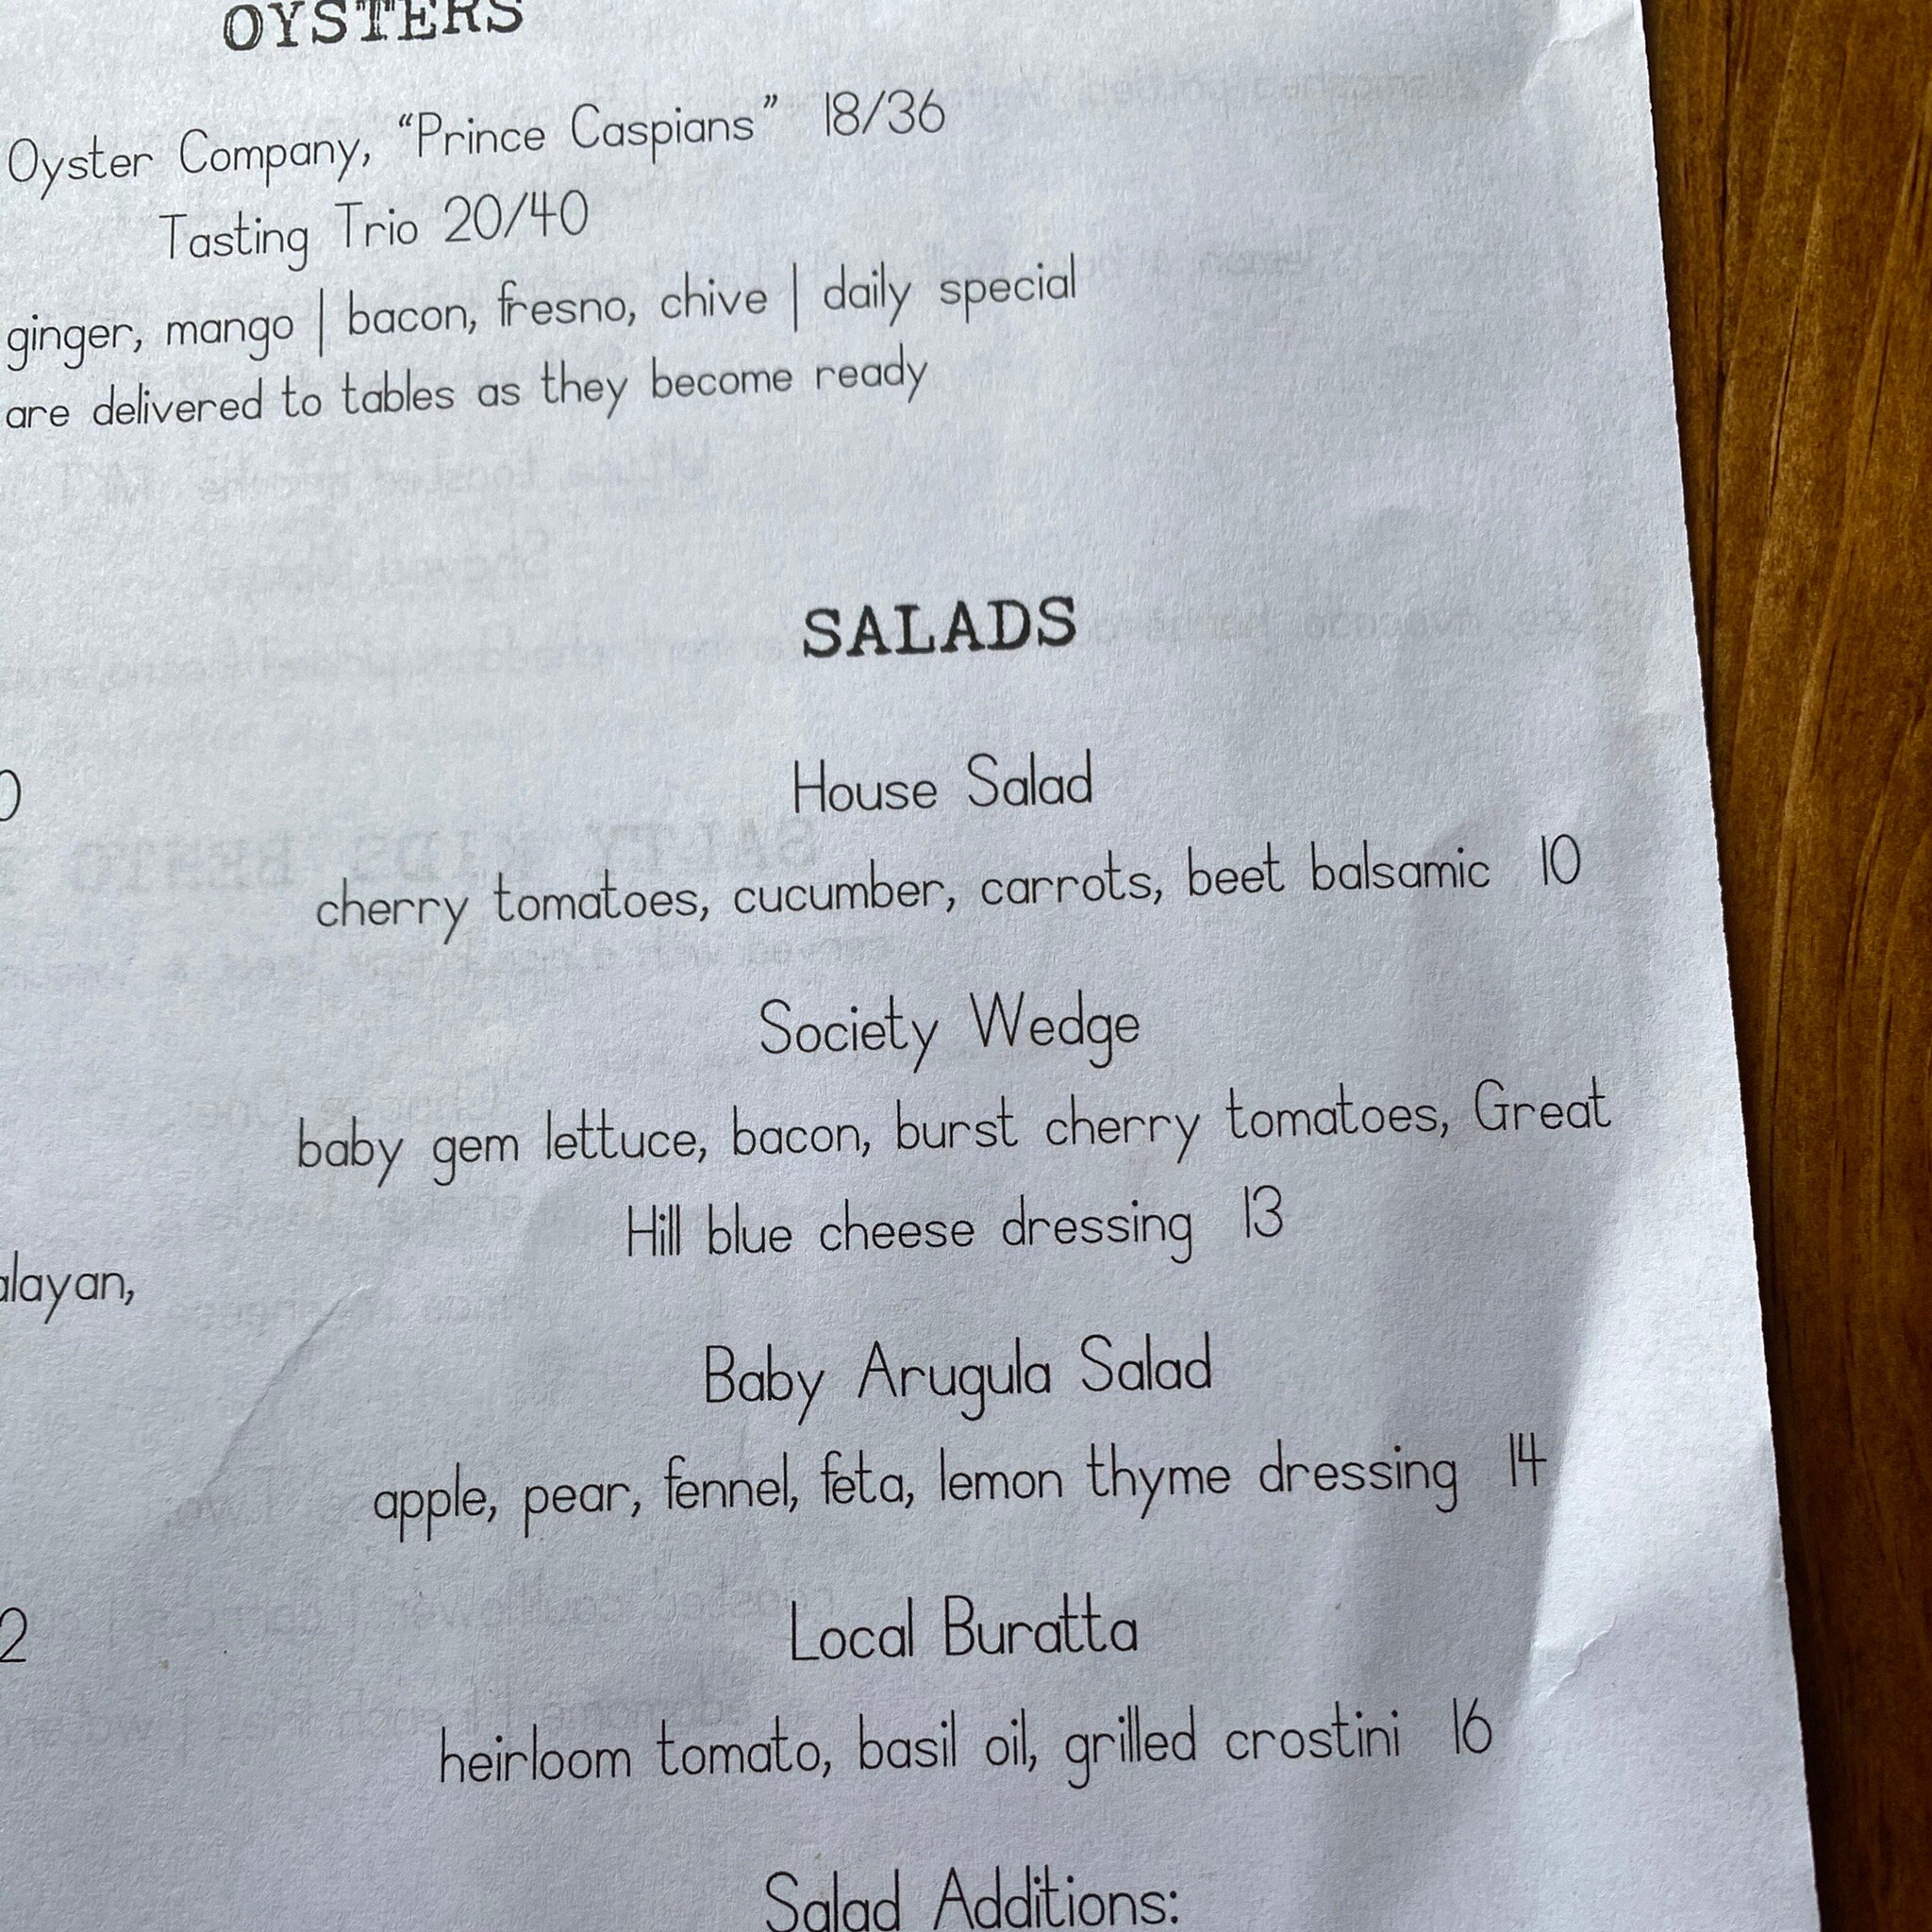 OYSTERS
Oyster Company, “Prince Caspians” 18/36
Tasting Trio 20/40
ginger, mango | bacon, fresno, chive | daily special
are delivered to tables as they become ready
SALADS
House Salad
cherry tomatoes, cucumber, carrots, beet balsamic 10
Society Wedge
baby gem lettuce, bacon, burst cherry tomatoes, Great
Hill blue cheese dressing 13
alayan,
Baby Arugula Salad
apple, pear, fennel, feta, lemon thyme dressing 14
2
Local Buratta
heirloom tomato, basil oil, grilled crostini 16
Salad Additions: